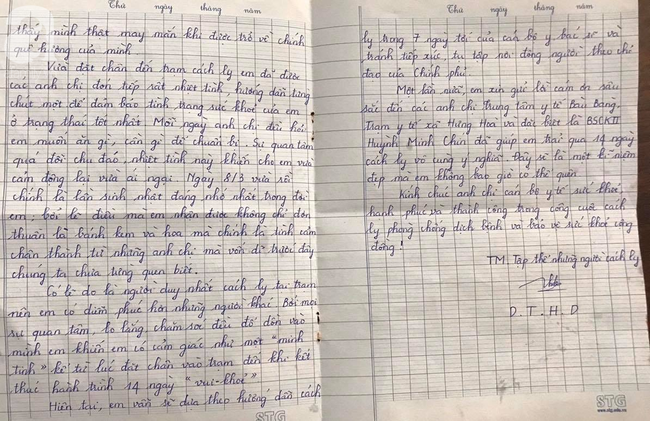 Thứ ngày tháng năm
thấy mình thật may mắn khi được trở về chính
quê hương của mình.
Vừa đặt chân đến trạm cách ly em đã được
các anh chị đón tiếp rất nhiệt tình, hướng dẫn từng
chút một để đảm bảo tình trạng sức khoẻ của em
ở trạng thái tốt nhất. Mỗi ngày anh chị đều hỏi
em muốn ăn gì, cần gì để chuẩn bị. Sự quan tâm
quá đỗi chu đáo, nhiệt tình này khiến cho em vừa
cảm động lại vừa ái ngại. Ngày 8/3 vừa rồi
chính là lần sinh nhật đáng nhớ nhất trong đời
em, bởi lẽ điều mà em nhận được không chỉ đơn
thuần là bánh kem và hoa mà chính là tình cảm
chân thành từ những anh chị mà vốn dĩ trước đây
chúng ta chưa từng quen biết.
Có lẽ do là người duy nhất cách ly tại trạm
nên em có diễm phúc hơn những người khác. Bởi mọi
sự quan tâm, lo lắng, chăm sóc đều đổ dồn vào
mình em khiến em có cảm giác như một "minh
tinh" kể từ lúc đặt chân vào trạm đến khi kết
thúc hành trình 14 ngày "vui - khoẻ".
Hiện tại, em vẫn sẽ dựa theo hướng dẫn cách
STG
Thứ ngày tháng năm
ly trong 7 ngày tới của cán bộ y bác sĩ và
tránh tiếp xúc, tụ tập nơi đông người theo chỉ
đạo của Chính phủ.
Một lần nữa, em xin gửi lời cảm ơn sâu
sắc đến các anh chị Trung tâm y tế Bàu Bàng,
Trạm y tế xã Hưng Hoà và đặc biệt là BSCKII
Huỳnh Minh Chín đã giúp em trải qua 14 ngày
cách ly vô cùng ý nghĩa. Đây sẽ là một kỉ niệm
đẹp mà em không bao giờ có thể quên.
Kính chúc anh chị cán bộ y tế sức khoẻ,
hạnh phúc và thành công trong công cuộc cách
ly phòng chống dịch bệnh và bảo vệ sức khoẻ cộng
đồng!
TM. Tập thể những người cách ly
D. T. H. D
STG
www.stg.edu.vn